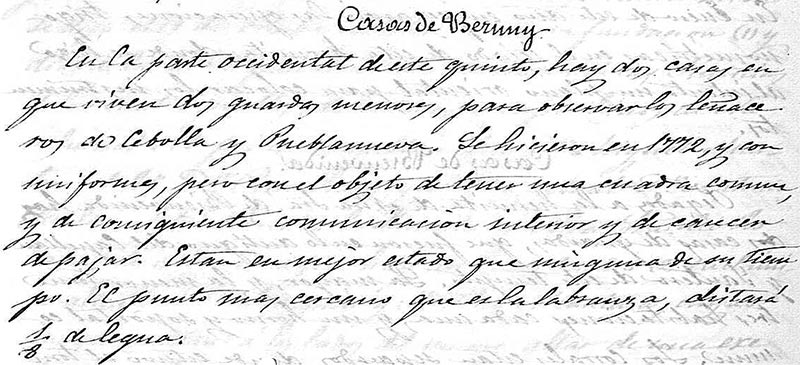 Casas de Beruny
En la parte occidental de este quinto, hay dos casas en
que viven dos guardas menores, para observar los leñace
ros de Cebolla y Pueblanueva. Se hicieron en 1772, y son
uniformes, pero con el objeto de tener una cuadra comun,
y de consiguiente comunicacion interior y de carecer
de pajar. Estan en mejor estado que ninguna de su tiem
po. El punto mas cercano que es la labranza, distará
1/8 de legua.